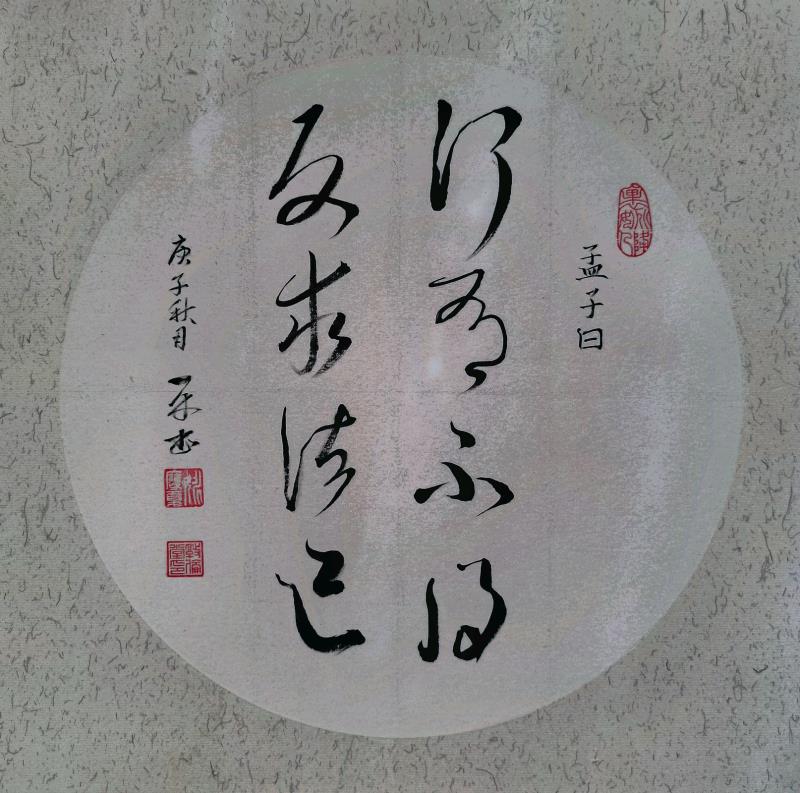 孟子曰
行有不得
反求诸己
庚子秋月